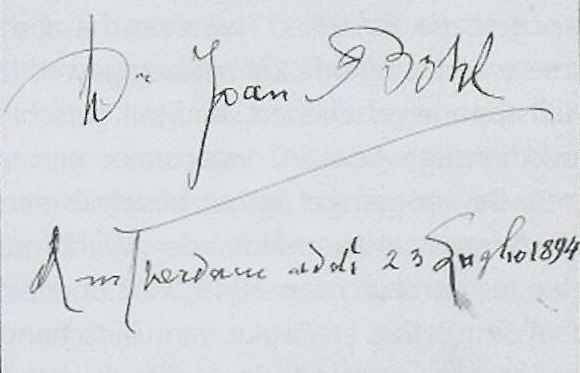 Dr Joan Bohl
Amsterdam addi 23 Luglio 1894